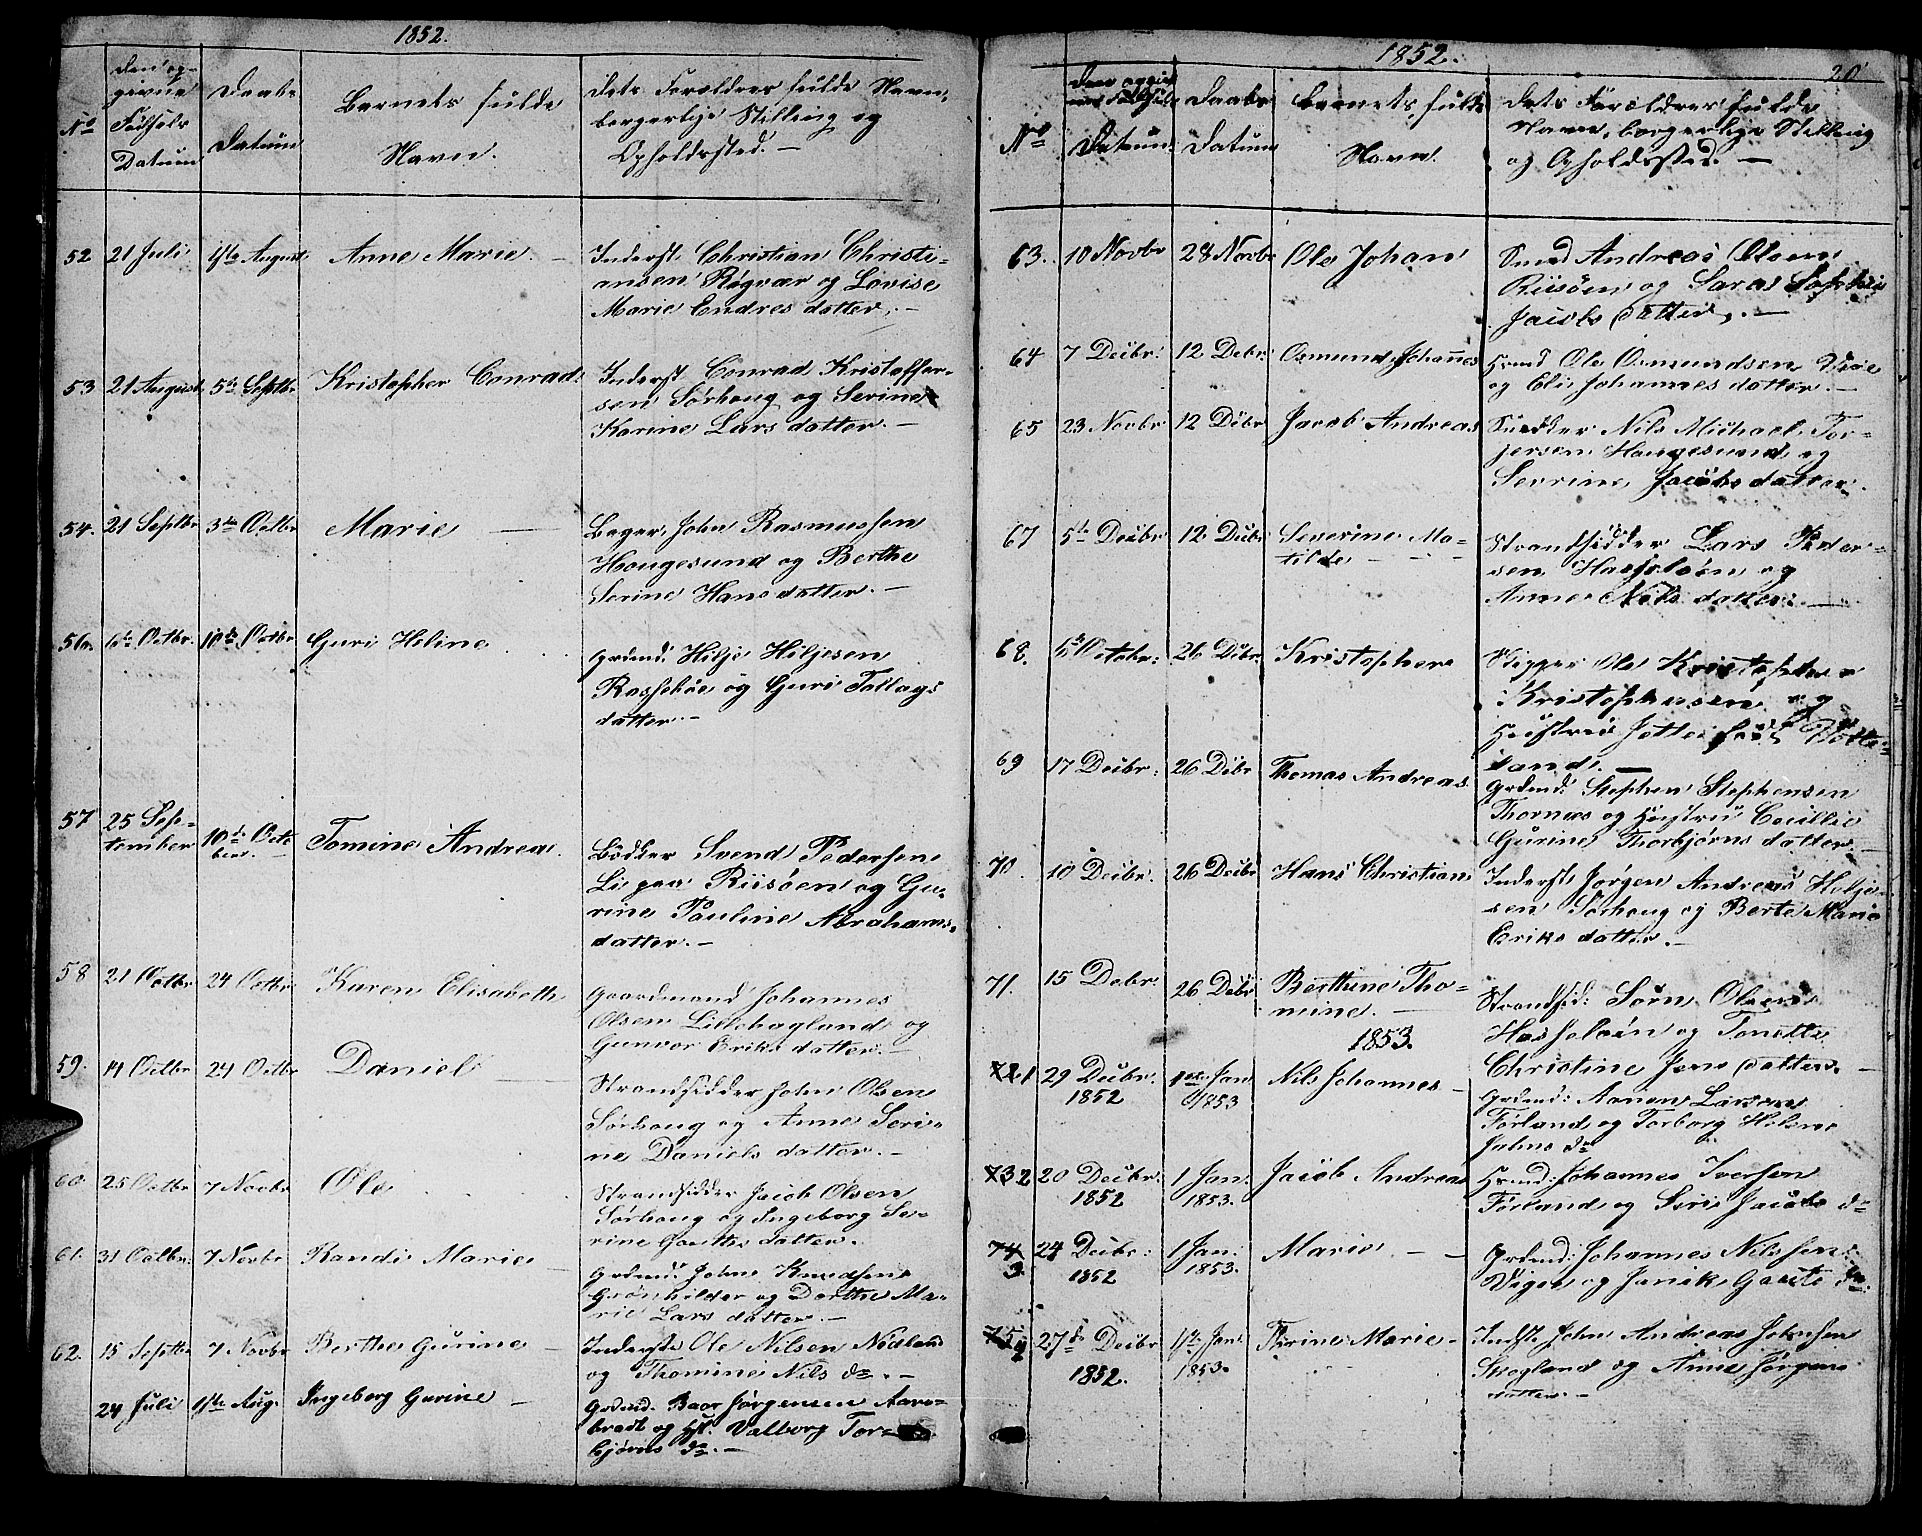 1852.
No
Den op-
givne
Fødsels
Datum
Daabs
Datum
Barnets fulde
Navn.
Dets Forældres fulde Navn,
borgerlige Stilling og
Opholdssted. —
52
21 Juli
1ste August
Anne Marie. —
Inderst Christian Christi-
ansen Røgvær og Lovise
Marie Endres datter. —
53
21 August
5te Septbr
Kristopher Conrad.
Inderst Conrad Kristoffer-
sen Sørhoug og Serine
Karine Lars datter. —
54.
21 Septbr
3die Octbr
Marie —
Bager John Rasmussen
Hougesund og Berthe
Serine Hans datter. —
56.
6te Octbr.
10de Octbr
Guri Heline
Grdmd. Hilje Hiljesen
og Guri Tollags
datter. —
57
25 Sep-
tember
10de Octo
ber.
Tomine Andrea.
Bødker Svend Pedersen
Li paa Riisøen og Gu-
rine Pauline Abrahams-
datter. —
58
21 Octbr
24 Octbr
Karen Elisabeth
Gaardmand Johannes
Olsen Lillehagland og
Gunvor Eriks datter. —
59.
14 Octbr
24 Octbr
Daniel —
Strandsidder John Olsen
Sørhoug og Anne Seri-
ne Daniels datter. —
60
25 Octbr
7 Novbr
Ole
Strandsidder Jacob Olsen
Sørhoug og Ingeborg Se-
rine Gauthes datter.
61.
31 Octbr.
7 Novbr
Randi Marie —
Grdmd. John Knudsen
Grønhilder og Dorthe Ma-
rie Lars datter. —
62.
15 Septbr
7 Novbr
Berthe Gurine —
Inderste Ole Nilsen Nødland
og Thomine Nils dr. —
24 Juli
1ste Aug.
Ingeborg Gurine —
Grdmd. Baar Jørgensen Aarø-
bradt og Hst. Valborg Tor-
bjørns dr. —
1852.
20
No
Den opgiv-
ne Fødsels
Datum
Daabs
Datum
Barnets fulde
Navn.
Dets Forældres fulde
Navn, borgerlige Stilling
og Opholdssted. —
63.
10 Novbr
28 Novbr
Ole Johan
Smed Andreas Olsen
Riisøen og Sara Sophie
Jacobs datter. —
64
7 Decbr.
12 Debr.
Osmund Johannes
Hmd Ole Osmundsen
og Eli Johannes datter. —
65
23 Novbr
12 Dcbr
Jacob Andreas
Snedker Nils Michael Tor-
jersen Hougesund og
Serine Jacobs datter.
67
5te Decbr
12 Decbr
Severine Ma-
tilde —
Strandsidder Lars Peder-
sen Hasseløen og
Anne Nils datter. —
68.
6te Octobr:
26 Dcbr.
Kristopher
Skipper Ole Kristopher
Kristophersen og
Hustrue Jottei født
land. —
69
17 Decbr:
26 Dcbr
Thomas Andreas
Grdmd. Stephen Stephensen
Thornæs og Hustru Cecillie
Gurine Thorbjørns datter. —
70.
10 Decbr.
26 Decbr
Hans Christian
Inderst Jørgen Andreas Helje-
sen Sørhoug og Berte Marie
Eriks datter. —
71.
15 Debr.
26 Debr
Berthine Tho-
mine. —
Strandsid: Sørn Olsen
Hasseløen og Tonette
Christine Jens datter. —
1853.
72 1
29 Decbr.
1852
1ste Jan
1853
Nils Johannes —
Grdmd: Aanen Larsen
Førland og Torborg Helene
Jahns dr
73 2
20 Decbr.
1852
1 Jan.
1853.
Jacob Andreas
Hmd: Johannes Iversen
Førland og Siri Jacobs dr
74
3.
24 Decbr:
1852
1 Jan:
1853.
Marie. — —
Grdmd: Johannes Nilssen
Vigen og Janike Gaute dr.
75 4
27de Decbr
1852.
1ste Jan.
1853.
Thrine Marie —
Indste John Andreas Johnsen
Skogland og Anne Jørgens
datter. —